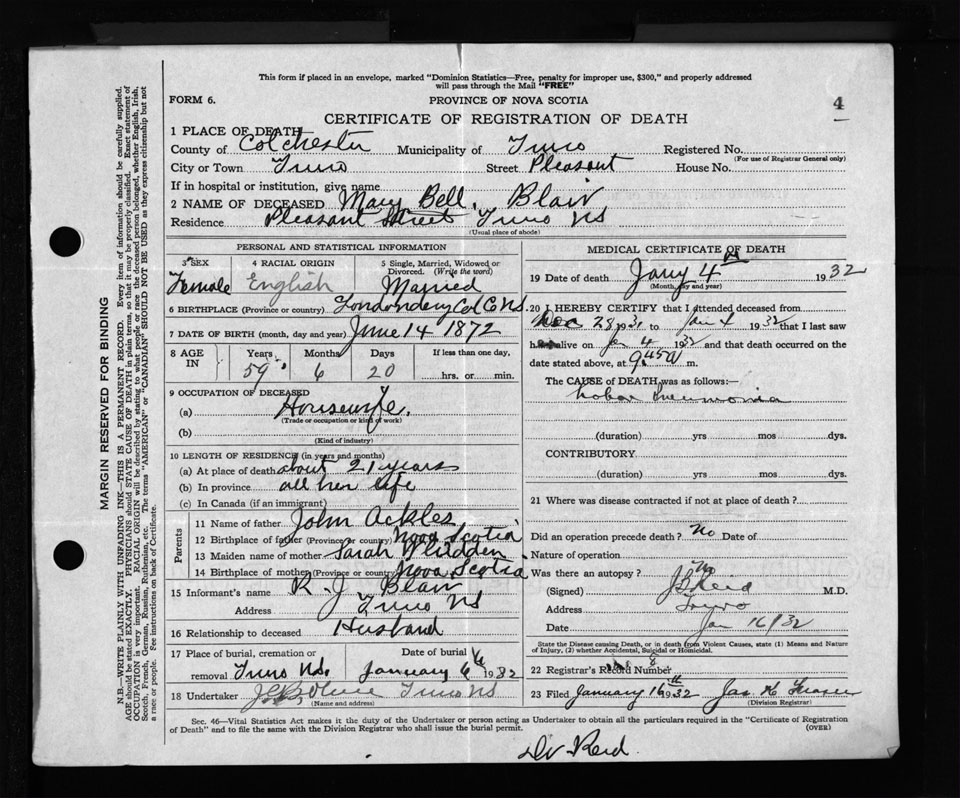 This form if placed in an envelope, marked "Dominion Statistics—Free, penalty for improper use, $300," and properly addressed
will pass through the Mail "FREE"
FORM 6.
PROVINCE OF NOVA SCOTIA
4
CERTIFICATE OF REGISTRATION OF DEATH
1 PLACE OF DEATH
County of Colchester Municipality of Truro Registered No.
(For use of Registrar General only)
City or Town Truro Street Pleasant House No.
If in hospital or institution, give name
2 NAME OF DECEASED Mary Bell, Blair
Residence Pleasant Street Truro NS
(Usual place of abode)
PERSONAL AND STATISTICAL INFORMATION
3 SEX 4 RACIAL ORIGIN 5 Single, Married, Widowed or
Divorced. (Write the word)
Female English Married
6 BIRTHPLACE (Province or country) Londonderry Col Co NS.
7 DATE OF BIRTH (month, day and year) June 14 1872
8 AGE IN Years Months Days If less than one day,
59 6 20 hrs. or min.
9 OCCUPATION OF DECEASED
(a) Housewife.
(Trade or occupation or kind of work)
(b)
(Kind of industry)
10 LENGTH OF RESIDENCE (in years and months)
(a) At place of death about 21 years
(b) In province all her life
(c) In Canada (if an immigrant)
Parents
11 Name of father John Ackles
12 Birthplace of father (Province or country) Nova Scotia
13 Maiden name of mother Sarah
14 Birthplace of mother (Province or country) Nova Scotia
15 Informant's name R. J Blair
Address Truro NS
16 Relationship to deceased Husband
17 Place of burial, cremation or Date of burial
removal Truro NS. January 6th 1932
18 Undertaker Truro NS
(Name and address)
MEDICAL CERTIFICATE OF DEATH
19 Date of death Jany 4th 1932
(Month, day and year)
20 I HEREBY CERTIFY that I attended deceased from
Dec 28 1931 to Jan 4 1932 that I last saw
h alive on Jan 4 1932 and that death occurred on the
date stated above, at 9.45 a m.
The CAUSE of DEATH was as follows:—
Lobar Pneumonia
(duration) yrs mos dys.
CONTRIBUTORY
(duration) yrs mos dys.
21 Where was disease contracted if not at place of death?
Did an operation precede death? No Date of
Nature of operation
Was there an autopsy? No
(Signed) Reid M.D.
Address Truro
Date Jan 16/32
State the Disease causing Death, or in death from Violent Causes, state (1) Means and Nature
of Injury, (2) whether Accidental, Suicidal or Homicidal.
22 Registrar's Record Number
23 Filed January 16th 1932 Jas K Fraser
(Division Registrar)
Sec. 46—Vital Statistics Act makes it the duty of the Undertaker or person acting as Undertaker to obtain all the particulars required in the "Certificate of Registration
of Death" and to file the same with the Division Registrar who shall issue the burial permit. (OVER)
Dr Reid
MARGIN RESERVED FOR BINDING
N.B.—WRITE PLAINLY WITH UNFADING INK—THIS IS A PERMANENT RECORD. Every item of information should be carefully supplied.
AGE should be stated EXACTLY. PHYSICIANS should STATE CAUSE OF DEATH in plain terms, so that it may be properly classified. Exact statement of
OCCUPATION is very important. RACIAL ORIGIN will be described by stating to what people or race the deceased person belonged, whether English, Irish,
Scotch, French, German, Russian, Ruthenian, etc. The terms "AMERICAN" or "CANADIAN" SHOULD NOT BE USED as they express citizenship but not
a race or people. See instructions on back of Certificate.